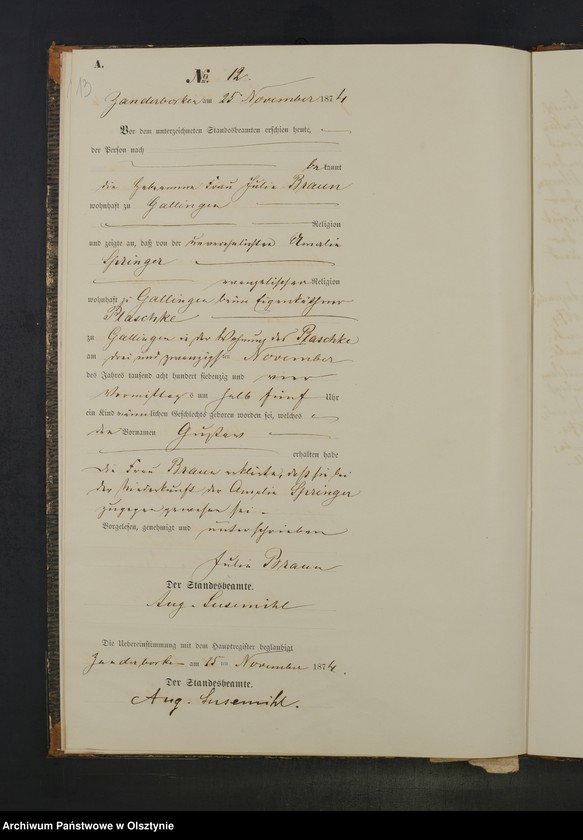 A.
13
No. 12.
Zanderborken am 25 November 1874
Vor dem unterzeichneten Standesbeamten erschien heute,
der Person nach
bekannt
die Hebamme Frau Julie Braun
wohnhaft zu Gallingen
Religion
und zeigte an, daß von der unverehelichten Amalie
Springer
evangelischer Religion
wohnhaft zu Gallingen beim Eigenkäthner
Plaschke
zu Gallingen in der Wohnung des Plaschke
am drei und zwanzigsten November
des Jahres tausend acht hundert siebenzig und vier
Vormittags um halb fünf Uhr
ein Kind männlichen Geschlechts geboren worden sei, welches
den Vornamen Gustav
erhalten habe
Die Frau Braun erklärte, daß sie bei
der Niederkunft der Amalie Springer
zugegen gewesen sei.
Vorgelesen, genehmigt und unterschrieben
Julie Braun
Der Standesbeamte.
Aug. Susemihl
Die Uebereinstimmung mit dem Hauptregister beglaubigt
Zanderborken am 25 ten November 1874.
Der Standesbeamte.
Aug. Susemihl.
Archiwum Państwowe w Olsztynie